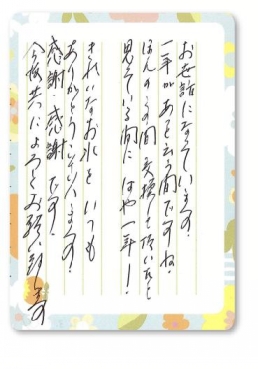 お世話になっています。
一年があっと云う間ですね。
ほんのこの間 交換して頂いたと
見ている間に はや一年!
きれいなお水を いつも
ありがとうございます。
感謝 感謝 です!
今後共によろしくお願い致します